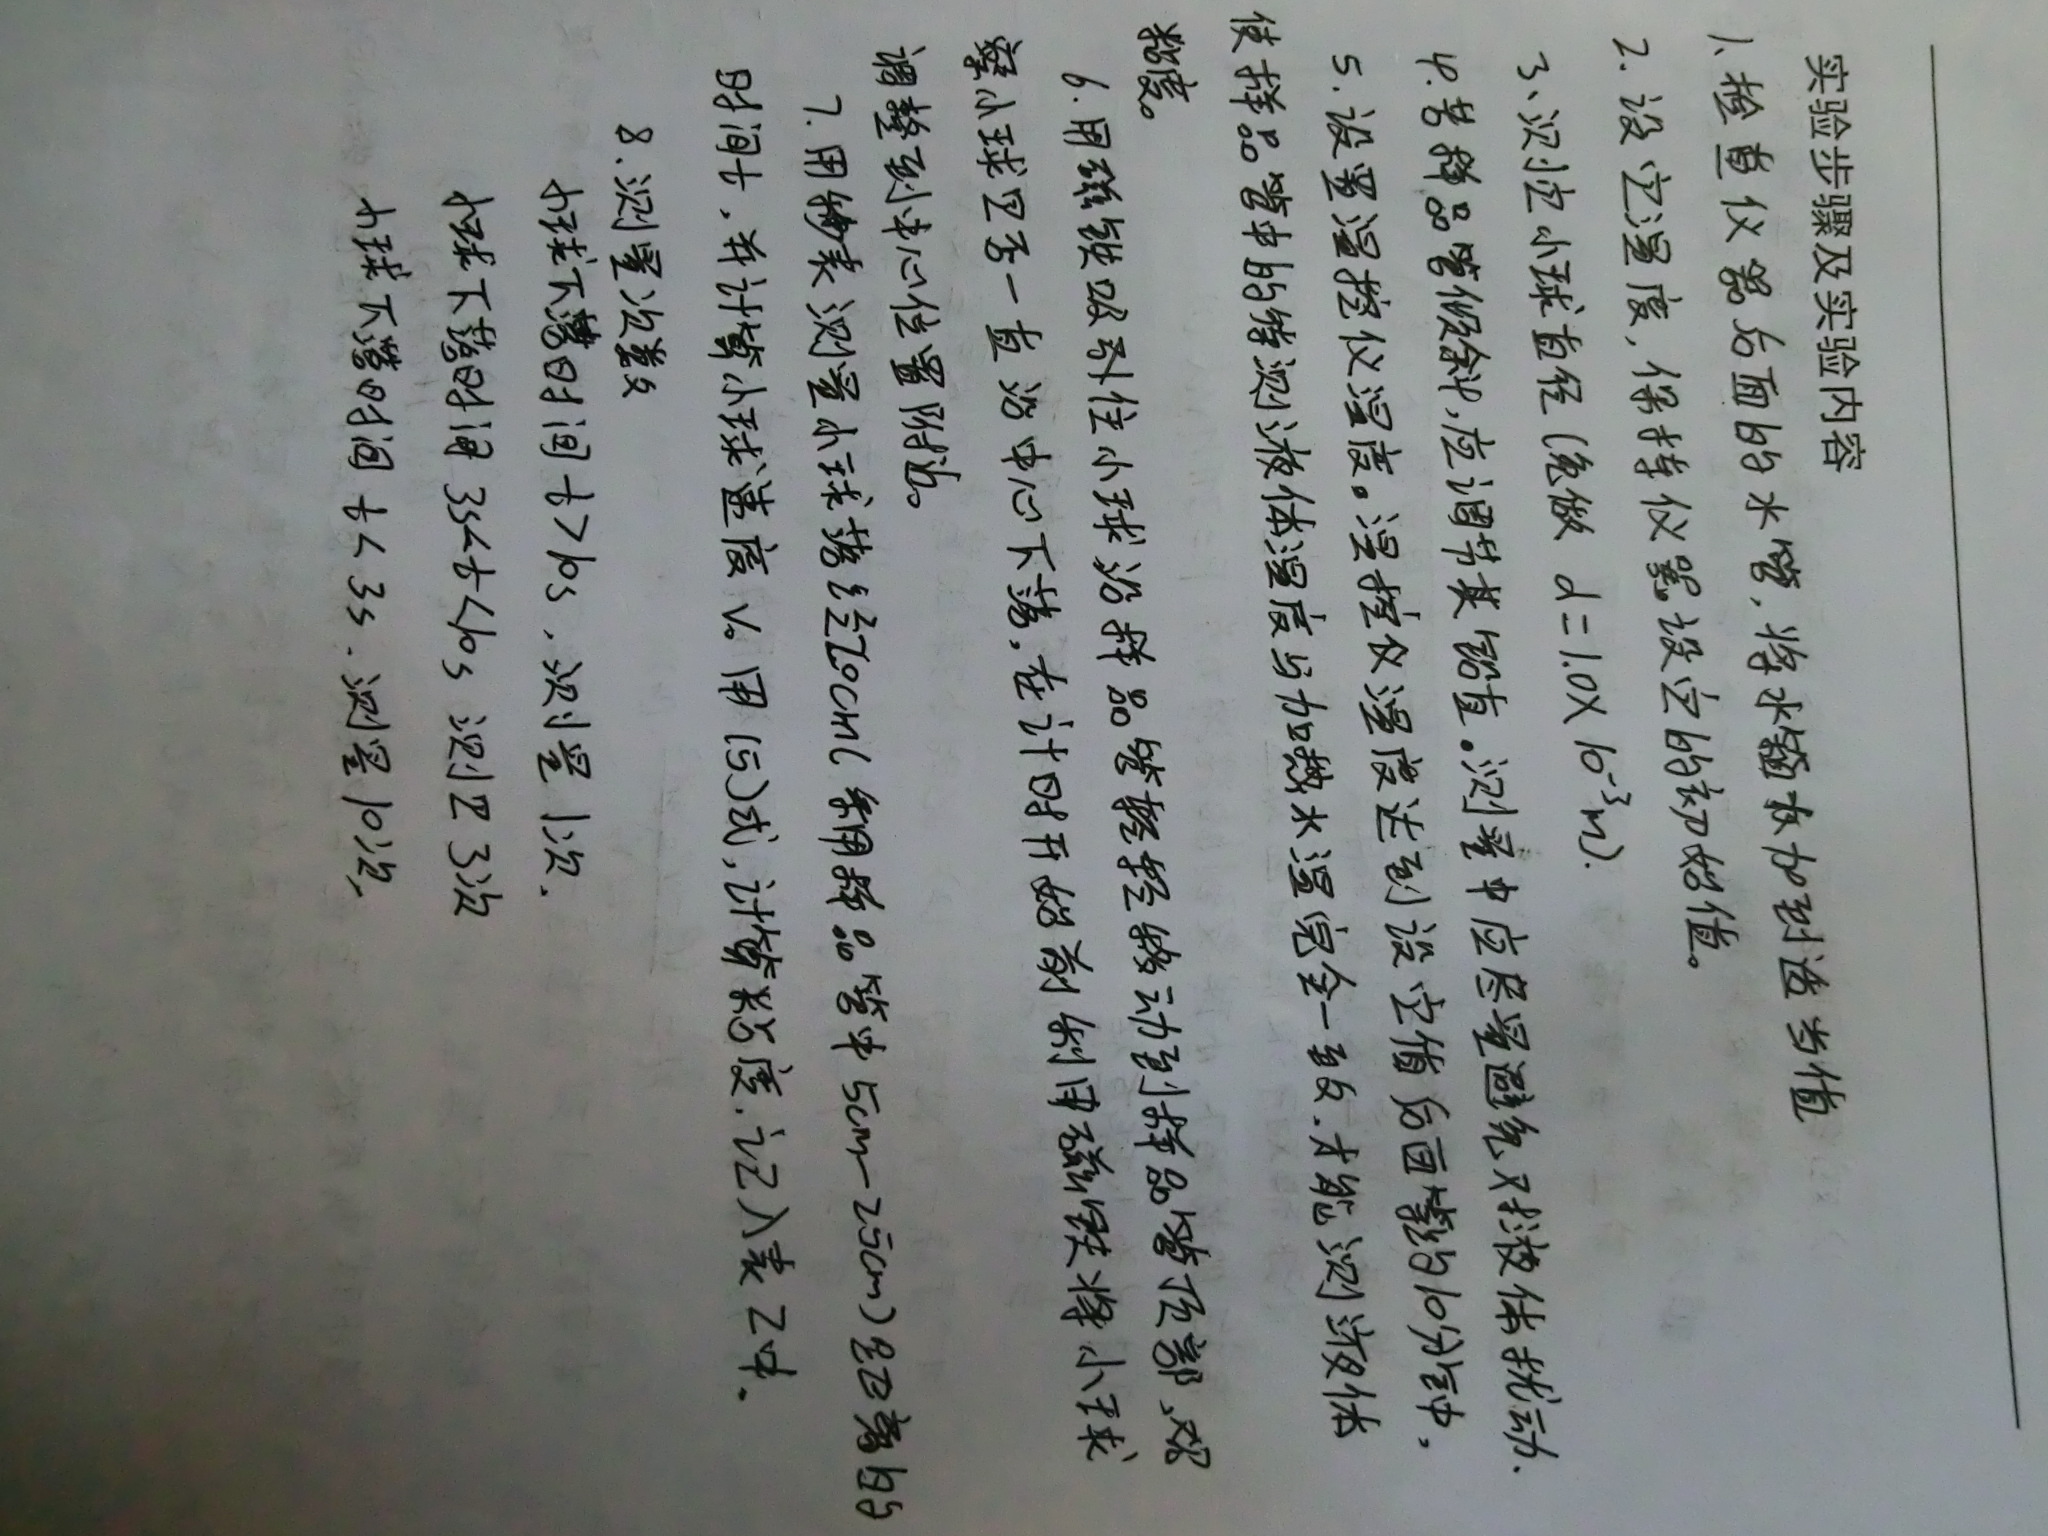 实验步骤及实验内容
1、检查仪器后面的水管，将水箱水加到适当值
2.设定温度，保持仪器设定的初始值。
3、测定小球直径（免做 d=1.0×10⁻³m）.
4.若样品管倾斜，应调节其铅直。测量中应尽量避免对液体扰动.
5.设置温控仪温度。温控仪温度达到设定值后再等约10分钟，
使样品管中的待测液体温度与加热水温完全一致.才能测液体
粘度。
6.用磁铁吸引住小球沿样品管轻轻移动到样品管顶部、观
察小球是否一直沿中心下落，在计时开始前利用磁铁将小球
调整到中心位置附近。
7.用秒表测量小球落经20cm（采用样品管中5cm—25cm）距离的
时间t，并计算小球速度v。用（5）式，计算粘度.记入表2中.
8.测量次数
小球下落时间t>10s、测量1次.
小球下落时间3s<t<10s 测量3次
小球下落时间t<3s.测量10次,